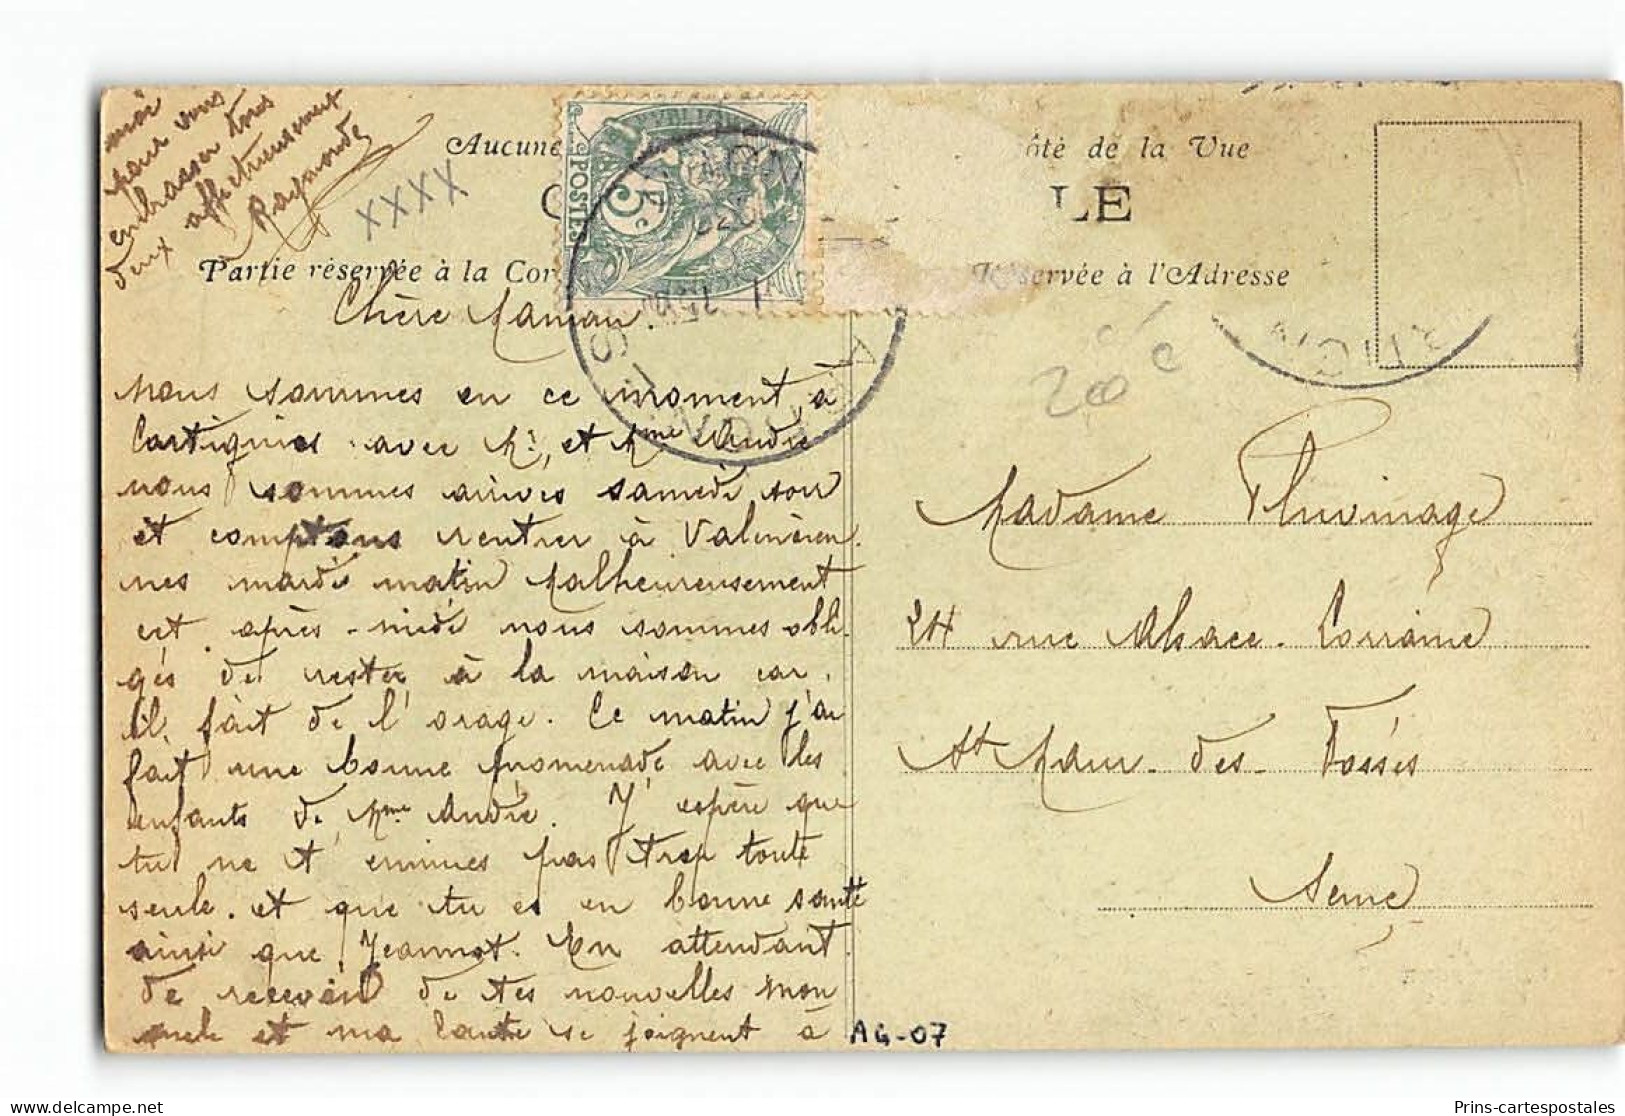 Aucune
ôté de la Vue
LE
Partie réservée à la Cor
Réservée à l'Adresse
POSTES
5c
Chère Maman.
nous sommes en ce moment à
Cartignies avec Mr, et Mme André
nous sommes arrivés samedi soir
et comptons rentrer à Valencien
nes mardi matin Malheureusement
cet après-midi nous sommes obli-
gés de rester à la maison car
il fait de l'orage. Ce matin j'ai
fait une bonne promenade avec les
enfants de Mme André. J'espère que
tu ne t'ennuies pas trop toute
seule. et que tu es en bonne santé
ainsi que Jeannot. En attendant
de recevoir de tes nouvelles mon
oncle et ma tante se joignent à
moi
pour vous
embrasser tous
deux affectueusement
Raymonde
XXXX
20c
Madame Pluvinage
24 rue Alsace-Lorraine
St Maur-des-Fossés
Seine
AG-07
Prins-cartespostales